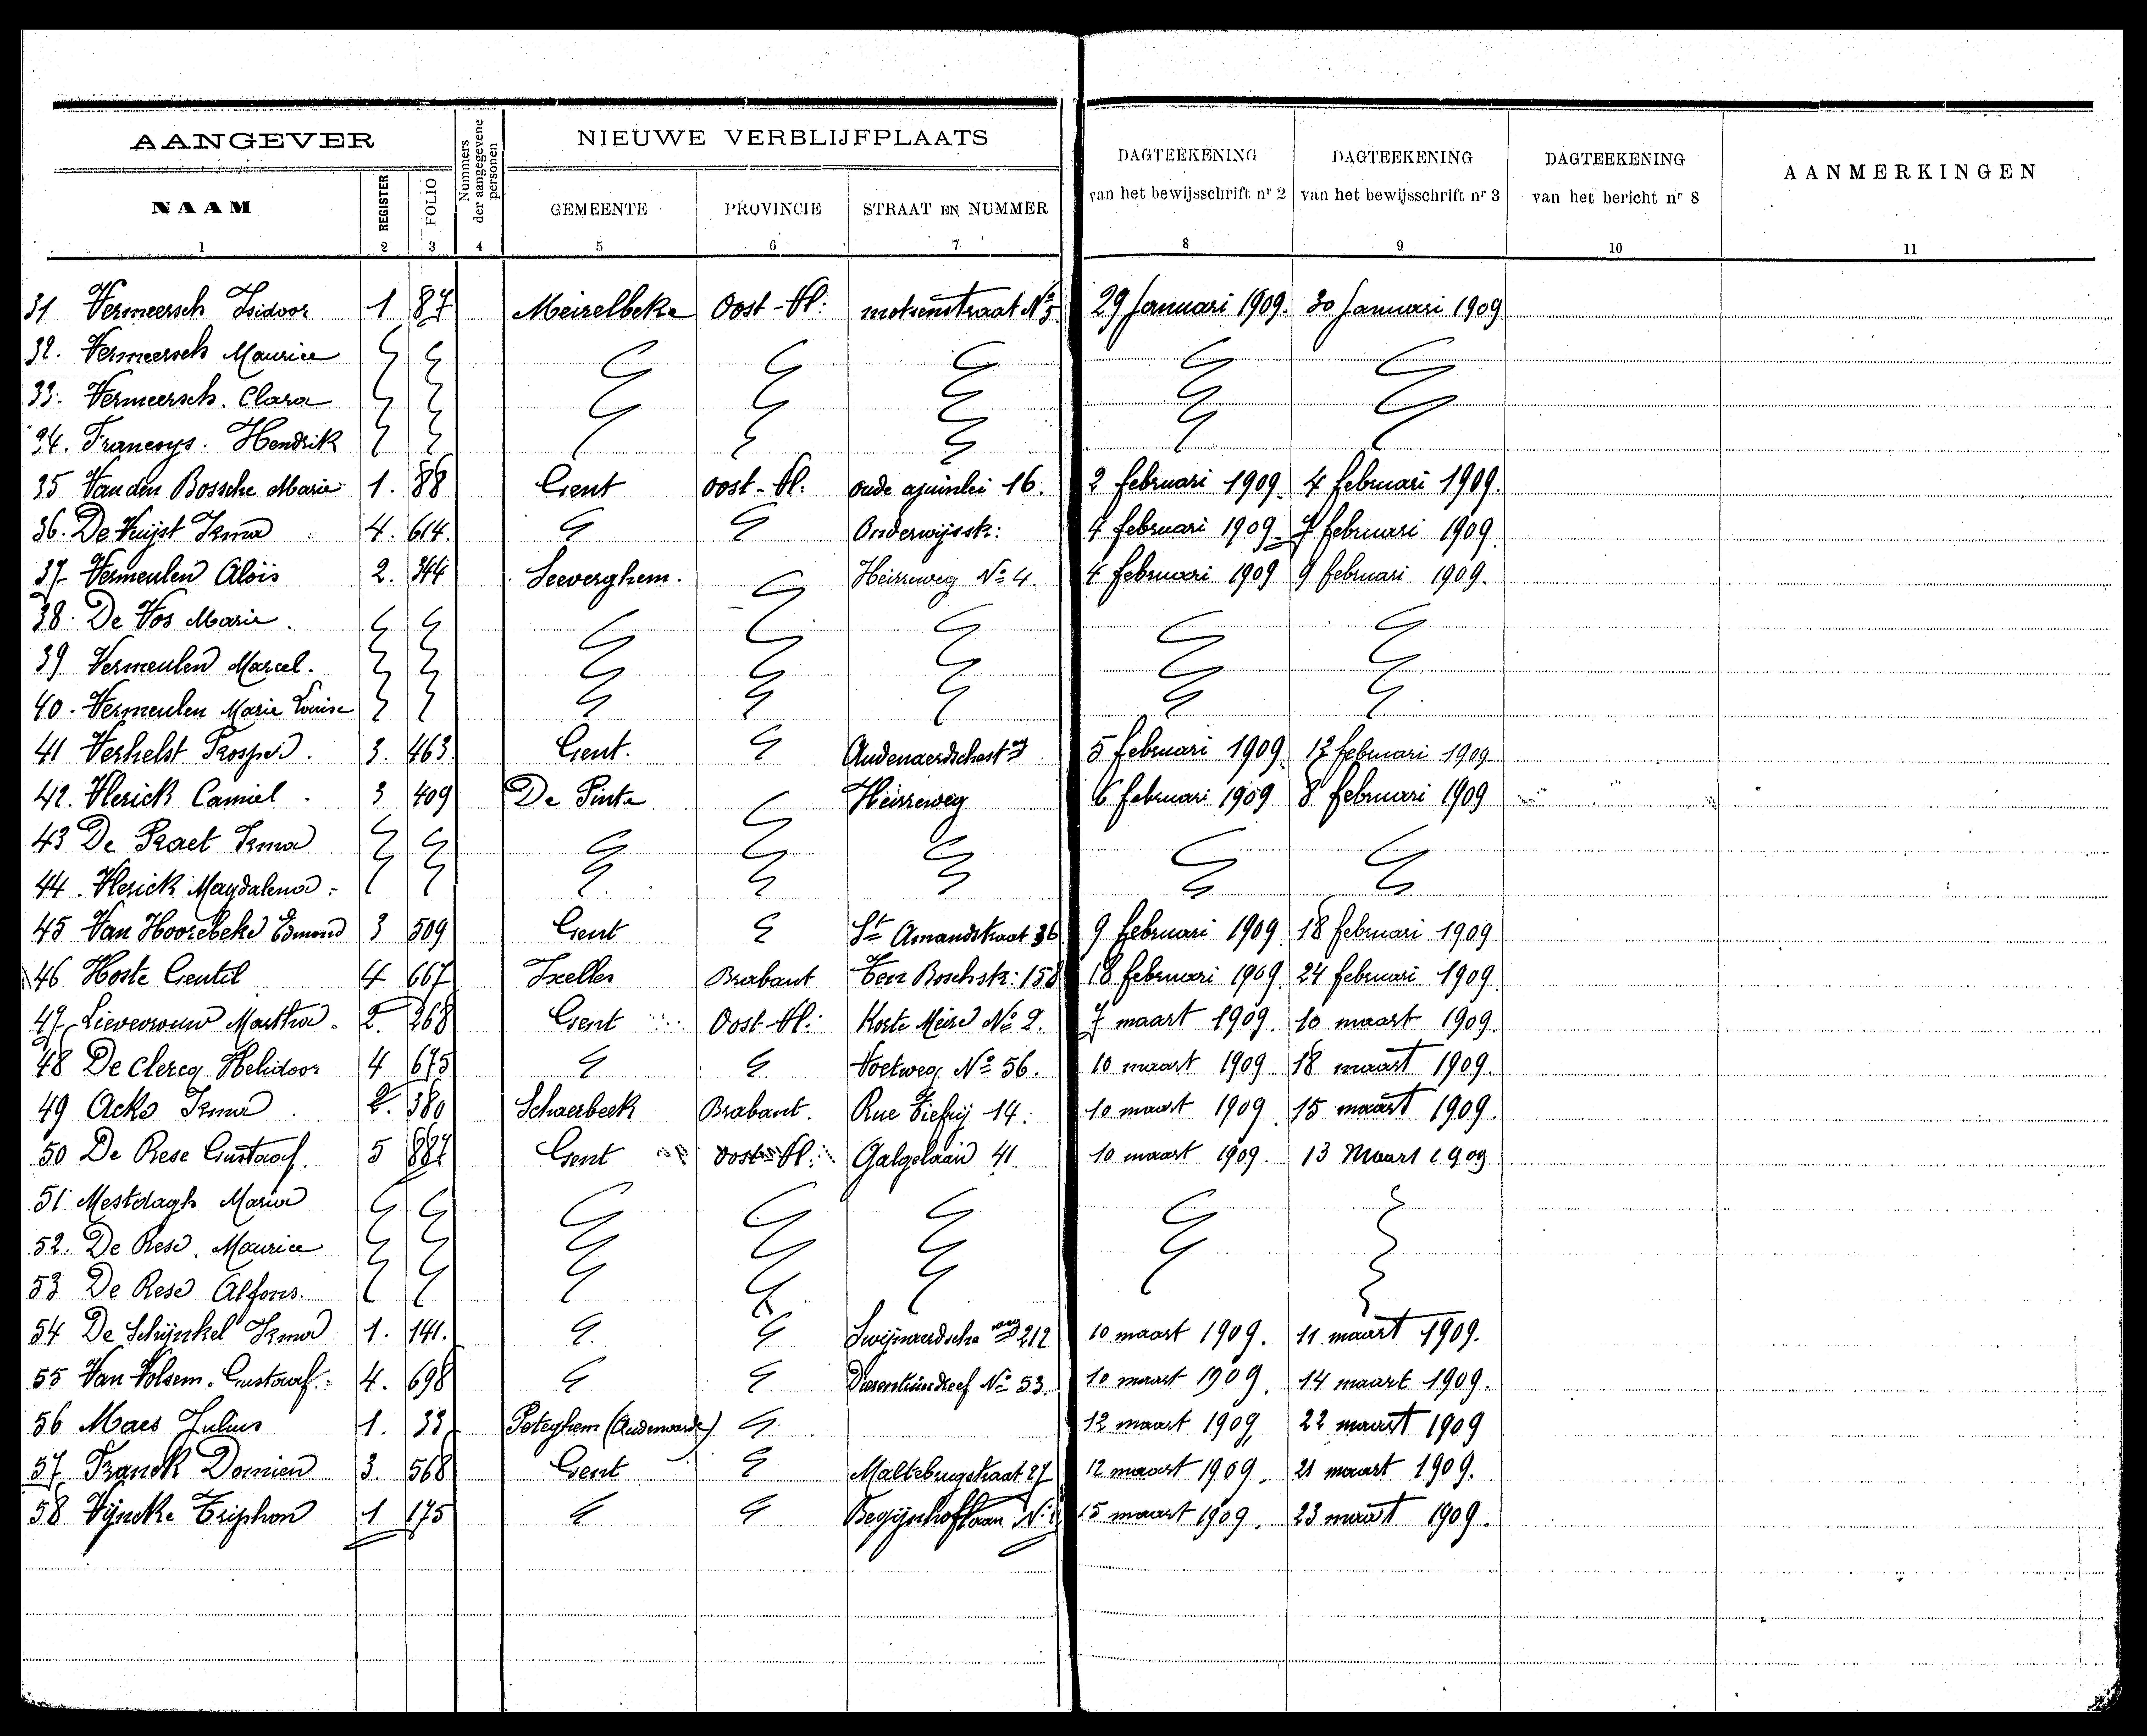 AANGEVER
Nummers der aangegevene personen
NIEUWE VERBLIJFPLAATS
DAGTEEKENING van het bewijsschrift nr 2
DAGTEEKENING van het bewijsschrift nr 3
DAGTEEKENING van het bericht nr 8
AANMERKINGEN
NAAM REGISTER FOLIO GEMEENTE PROVINCIE STRAAT EN NUMMER
1 2 3 4 5 6 7 8 9 10 11
31 Vermeersch Isidoor 1 87 Meirelbeke Oost-Vl: molsenstraat No 5 29 Januari 1909. 30 Januari 1909
32. Vermeersch Maurice
33. Vermeersch. Clara
34. Francoys. Hendrik
35 Van den Bossche Marie 1. 88 Gent oost-Vl: oude ajuinlei 16. 2 februari 1909. 4 februari 1909.
36. De Vuijst Irma 4. 614. Onderwijsstr: 4 februari 1909. 7 februari 1909.
37 Vermeulen Aloïs 2. 344 Seeverghem. Heirreweg No 4. 4 februari 1909 9 februari 1909.
38. De Vos Marie.
39 Vermeulen Marcel.
40. Vermeulen Marie Louise
41 Verhelst Prosper. 3. 463. Gent. Audenaerdschest wg 5 februari 1909. 12 februari 1909
42. Vlerick Camiel 3 409 De Pinte Heirreweg 6 februari 1909 8 februari 1909
43 De Praet Irma
44. Vlerick Magdalena
45 Van Hoorebeke Edmond 3 509 Gent St Amandstraat 36 9 februari 1909 18 februari 1909
46 Hoste Gentil 4 667 Ixelles Brabant Ter Boschstr: 158 18 februari 1909 24 februari 1909.
47 Lievevrouw Martha. 2. 268 Gent Oost-Vl: Korte Meire No 2. 7 maart 1909. 10 maart 1909.
48 De Clercq Helidoor 4 675 Voetweg No 56. 10 maart 1909 18 maart 1909.
49 Acks Irma 2. 380 Schaerbeek Brabant. Rue Tiefry 14. 10 maart 1909. 15 maart 1909.
50 De Rese Gustaaf. 5 887 Gent oost-Vl: Galgelaan 41 10 maart 1909. 13 Maart 1909
51 Mestdagh Maria
52. De Rese. Maurice
53 De Rese Alfons.
54 De Schijnkel Irma 1. 141. Swijnaerdsche weg 212 10 maart 1909. 11 maart 1909.
55 Van Volsem. Gustaaf. 4. 698 No 53. 10 maart 1909. 14 maart 1909.
56 Maes Julius 1. 33 Peteghem (Audenaarde) 12 maart 1909, 22 maart 1909
57 Franck Domien 3. 568 Gent Maltebrugstraat 27 12 maart 1909. 21 maart 1909.
58 Vijncke Triphon 1 175 Begijnhoflaan No 15 maart 1909. 23 maart 1909.